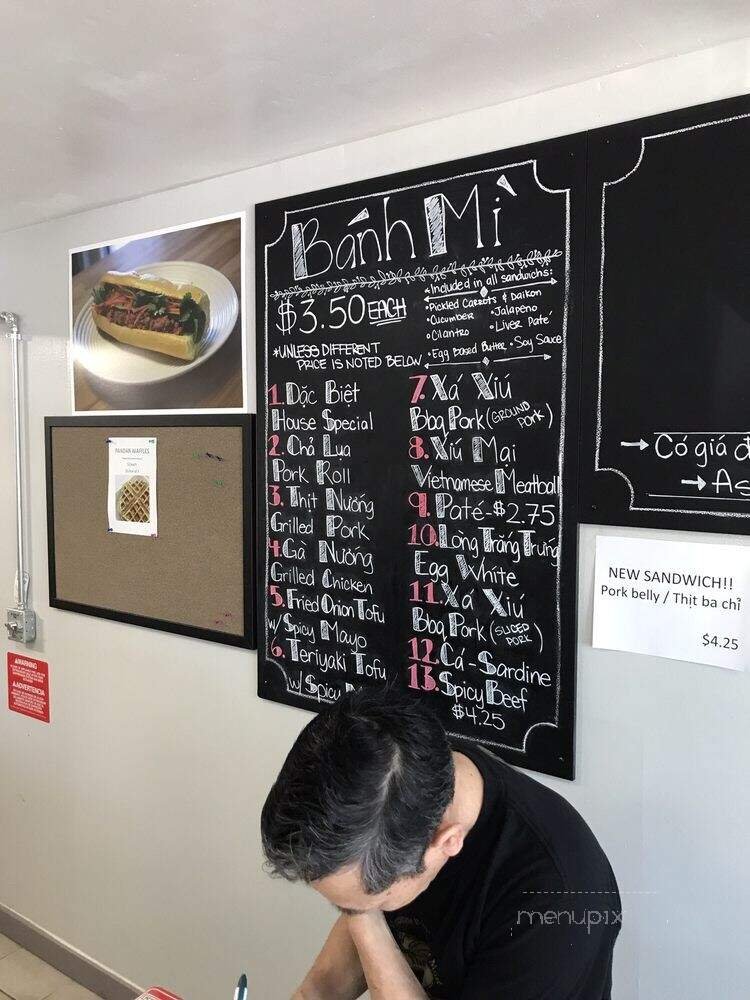 Bánh Mì
$3.50 EACH
*UNLESS DIFFERENT
PRICE IS NOTED BELOW
*Included in all sandwiches:
•Pickled Carrots & Daikon
•Cucumber •Jalapeno
•Cilantro •Liver Paté
•Egg Based Butter •Soy Sauce
1. Dặc Biệt
House Special
2. Chả Lụa
Pork Roll
3. Thịt Nướng
Grilled Pork
4. Gà Nướng
Grilled Chicken
5. Fried Onion Tofu
w/ Spicy Mayo
6. Teriyaki Tofu
w/ Spicy
7. Xá Xiú
Bbq Pork (GROUND PORK)
8. Xíu Mại
Vietnamese Meatball
9. Paté - $2.75
10. Lòng Trắng Trứng
Egg White
11. Xá Xiú
Bbq Pork (SLICED PORK)
12. Cá - Sardine
13. Spicy Beef
$4.25
PANDAN WAFFLES
→ Có giá
→ As
NEW SANDWICH!!
Pork belly / Thịt ba chỉ
$4.25
WARNING
ADVERTENCIA
menupix